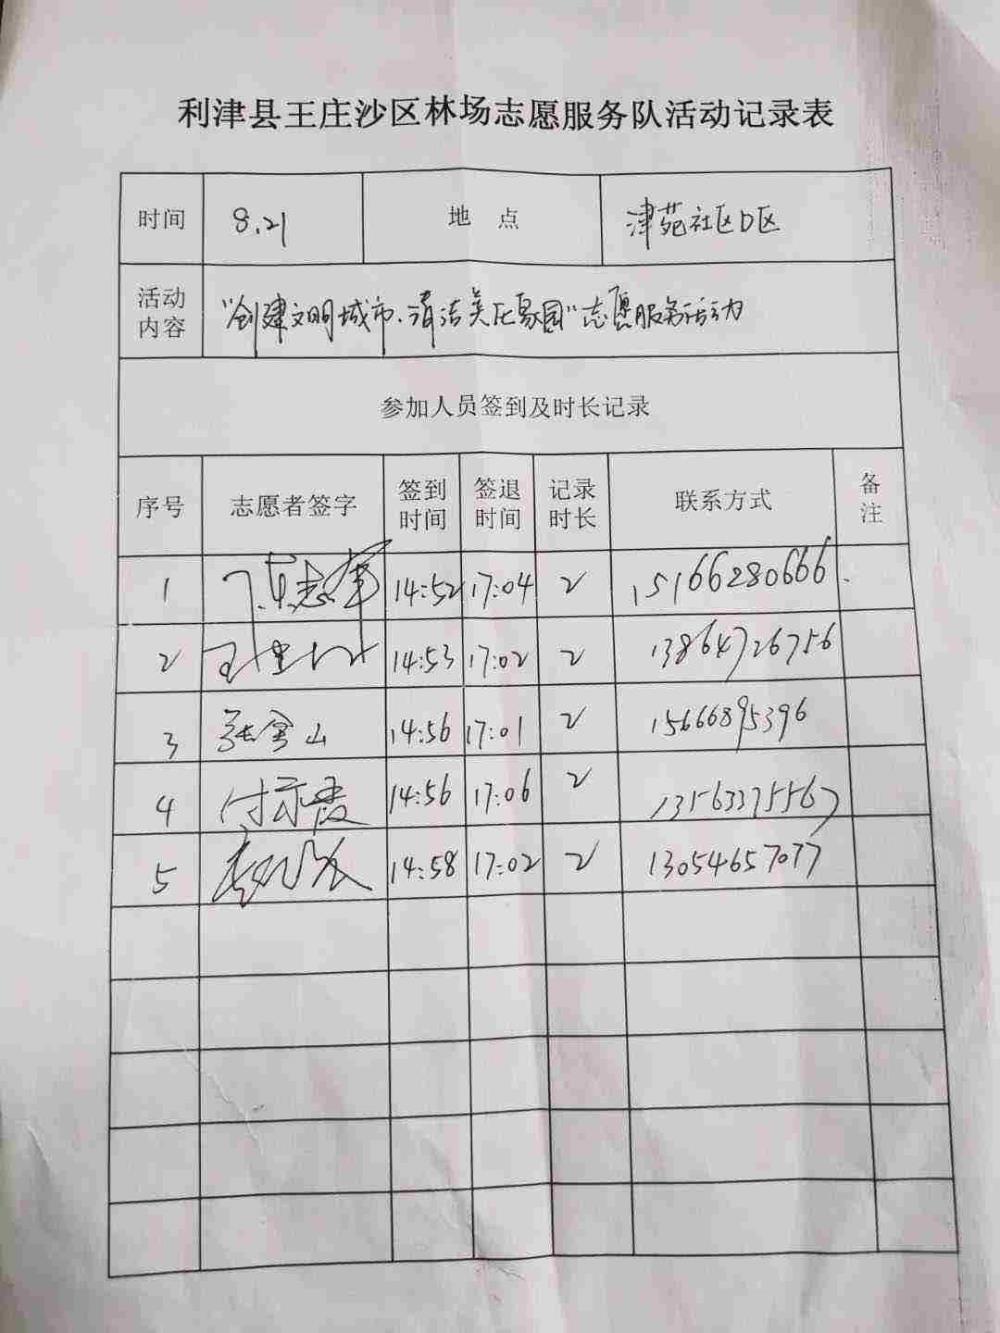 利津县王庄沙区林场志愿服务队活动记录表
时间 8.21 地 点 津苑社区D区
活动内容 "创建文明城市、清洁美化家园"志愿服务活动
参加人员签到及时长记录
序号 志愿者签字 签到时间 签退时间 记录时长 联系方式 备注
1 14:52 17:04 2 15166280666
2 14:53 17:02 2 13864726756
3 张雪山 14:56 17:01 2 15666895396
4 付示霞 14:56 17:06 2 13563375567
5 14:58 17:02 2 13054657077